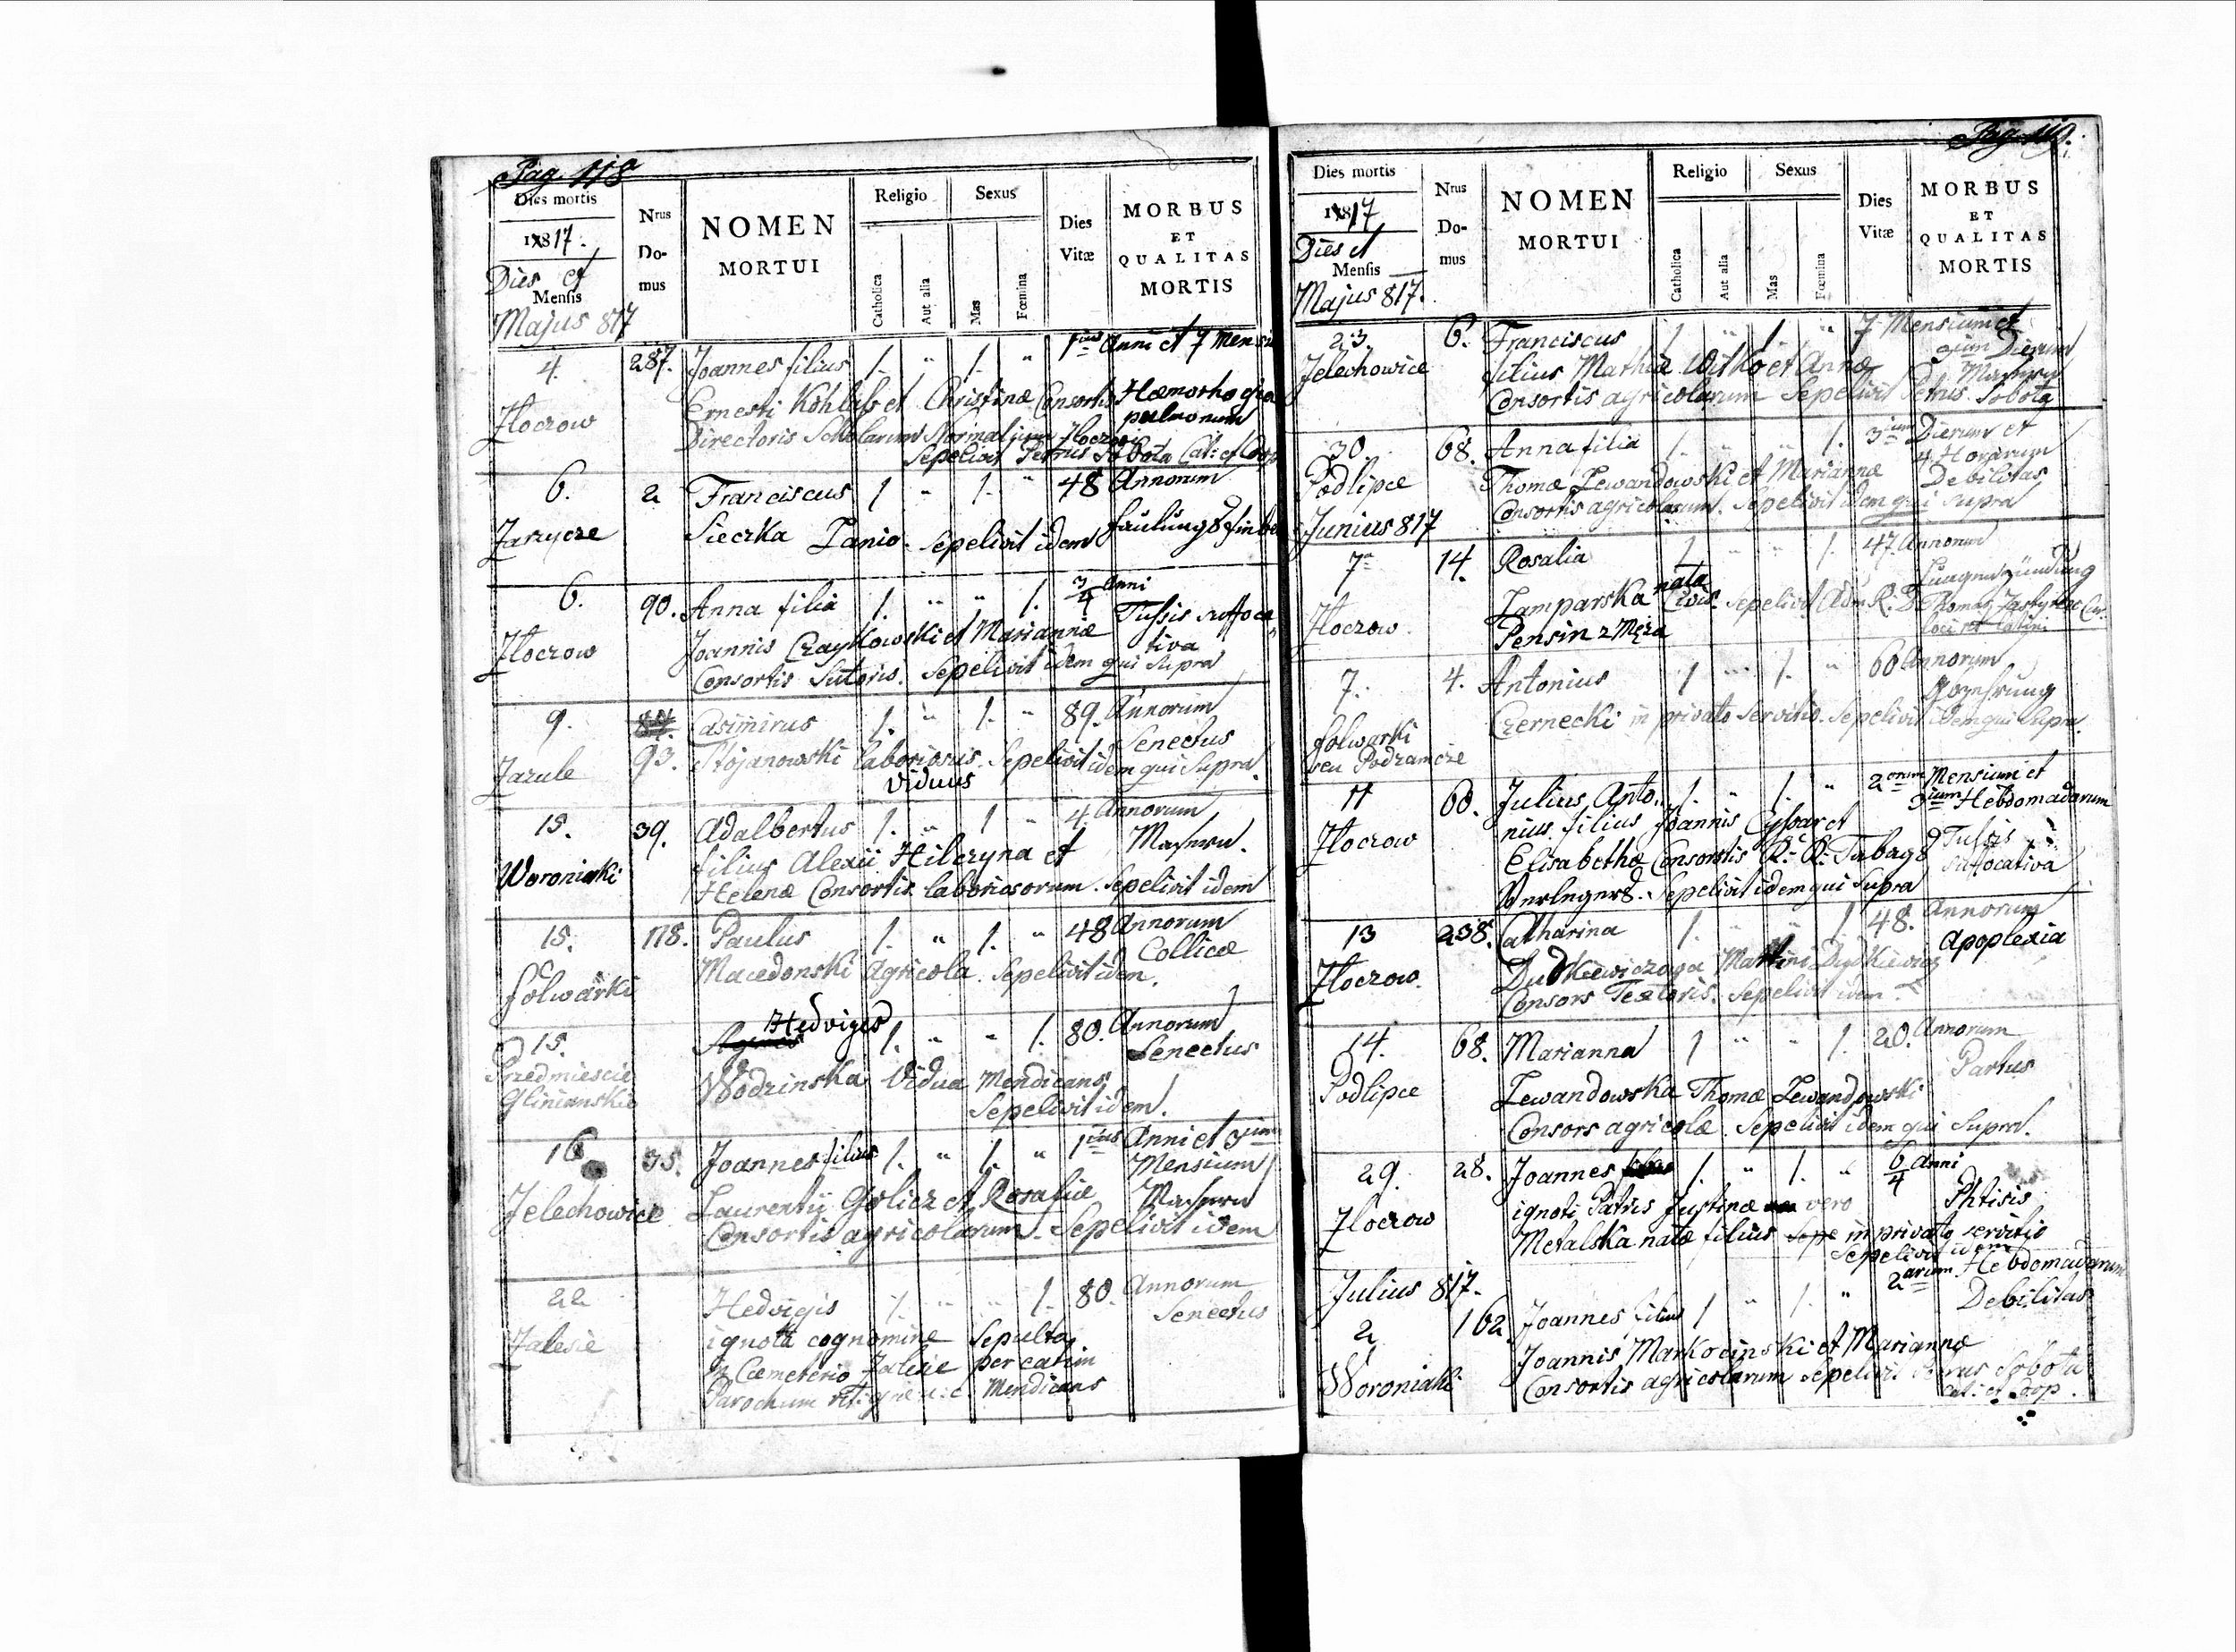 Pag. 118
Dies mortis
1817.
Dies et
Mensis
Majus 817
Nrus
Do-
mus
NOMEN
MORTUI
Religio
Catholica
Aut alia
Sexus
Mas
Fœmina
Dies
Vitæ
MORBUS
ET
QUALITAS
MORTIS
4. 287. Joannes filius 1. " 1. " 1ius Anni et 7 Mensi
Złoczow Ernesti Köhler et Christinæ Consortis Hæmorhogia
pulmonum
Directoris Scholarum Normalium Złoczow
Sepelivit Petrus Sobota Cat: et Coop
6. 2 Franciscus 1 " 1. " 48 Annorum
Zarzycze Sieczka Lanio. Sepelivit idem
6. 90. Anna filia 1. " " 1. 3/4 Anni
Złoczow Joannis Czaykowski et Mariannæ Tussis suffoca
tiva
Consortis Sutoris. Sepelivit idem qui Supra
9. Casimirus 1. " 1. " 89. Annorum
Zazule 93. Stojanowski laboriosus. Sepelivit idem qui Supra. Senectus
Viduus
15. 39. Adalbertus 1. " 1 " 4. Annorum
Woroniaki filius Alexii Hilczyna et Masern.
Helenæ Consortis laboriosorum. Sepelivit idem
15. 118. Paulus 1. " 1. " 48 Annorum
Folwarki Macedonski Agricola. Sepelivit idem. Collicæ
15. Agnes Hedviges 1. " " 1. 80. Annorum
Przedmiescie Wodzinska Vidua Mendicans Senectus
Glinianskie Sepelivit idem.
16 35. Joannes filius 1. " 1. " 1ius Anni et 3ium
Mensium
Jelechowice Laurentii Golicz et Rosaliæ Masern
Consortis agricolarum. Sepelivit idem
22 Hedvigis 1. " " 1. 80. Annorum
Zalesie ignota cognomine Sepulta Senectus
in Cæmeterio Zalesie per eatim
Parochum rit: græ: u: c. Mendicans
Pag. 119.
Dies mortis
1817
Dies et
Mensis
Majus 817.
Nrus
Do-
mus
NOMEN
MORTUI
Religio
Catholica
Aut alia
Sexus
Mas
Fœmina
Dies
Vitæ
MORBUS
ET
QUALITAS
MORTIS
23. 6. Franciscus 1 " 1 " 7 Mensium et
Dierum
Jelechowice filius Mathiæ Witko et Annæ Masern
Consortis agricolarum Sepelivit Petrus Sobota
30. 68. Anna filia 1. " " 1. 3ium Dierum et
4 Horarum
Podlipce Thomæ Lewandowski et Mariannæ Debilitas
Consortis agricolarum. Sepelivit idem qui Supra
Junius 817
7a 14. Rosalia 1 " " 1. 47. Annorum
Lungenzündung
Złoczow Lamparska nata Civis. Sepelivit Adm R: D: Thomas
Pensin z Męża loci rit Latini
7. 4. Antonius 1 " 1. " 60 Annorum
Abzehrung
Folwarki Czernecki in privato servitio. Sepelivit idem qui Supra.
seu Podzamcze
11 60. Julius Anto- 1. " 1. " 2orum Mensium et
3ium Hebdomadarum
Złoczow nius filius Joannis Cyssar et
Elisabethæ Consortis K: K: Tabags Tussis
suffocativa
Verlegers. Sepelivit idem qui Supra
13 238. Catharina 1. " " 1 48. Annorum
Złoczow. Dudkiewiczowa Martini Dudkiewicz Apoplexia
Consors Textoris. Sepelivit idem.
14. 68. Marianna 1 " " 1. 20. Annorum
Podlipce Lewandowska Thomæ Lewandowski Partus
Consors agricolæ. Sepelivit idem qui Supra.
29. 28. Joannes 1. " 1. " 6/4 Anni
Złoczow ignoti Patris Justinæ vero Phtisis
Metalska natæ filius in privato servitio
Sepelivit idem
Julius 817.
2 162 Joannes filius 1 " 1. " 2arum Hebdomadarum
Debilitas
Woroniaki Joannis Markocinski et Mariannæ
Consortis agricolarum Sepelivit Petrus Sobota
Cat: et Coop.